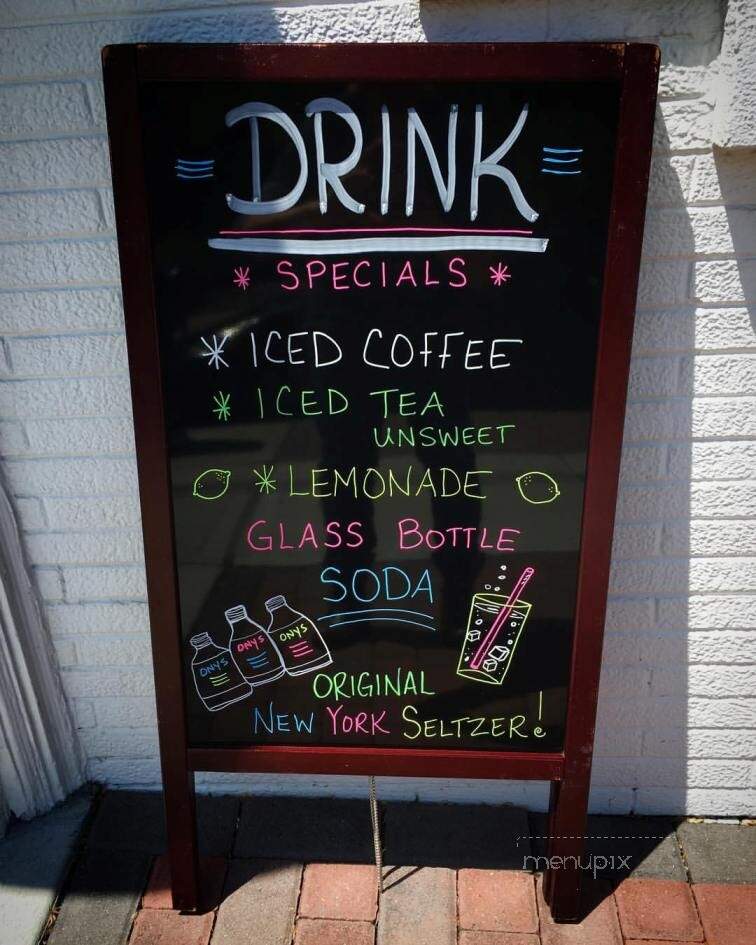 DRINK
* SPECIALS *
* ICED COFFEE
* ICED TEA
UNSWEET
* LEMONADE
GLASS BOTTLE
SODA
ONYS ONYS ONYS
ORIGINAL
NEW YORK SELTZER!
menupix